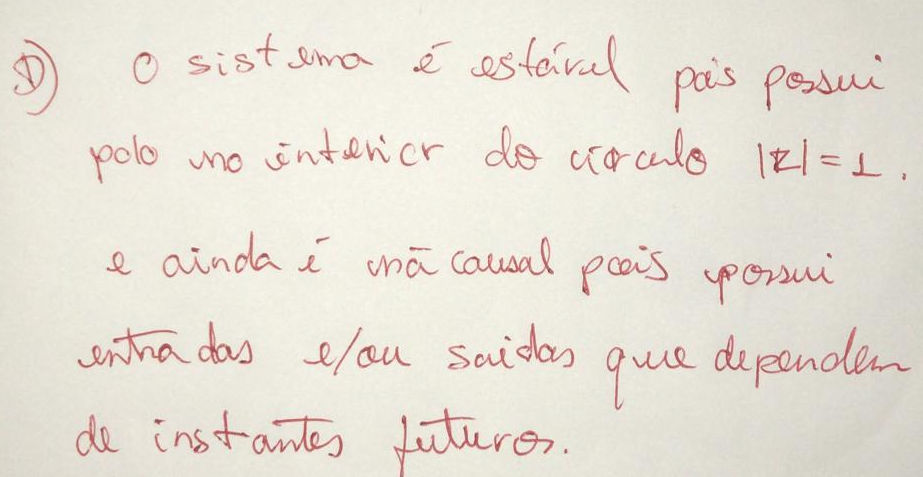 D) O sistema é estável pois possui
polo no interior do círculo |z| = 1.
e ainda é nã causal pois possui
entradas e/ou saidas que dependem
de instantes futuros.